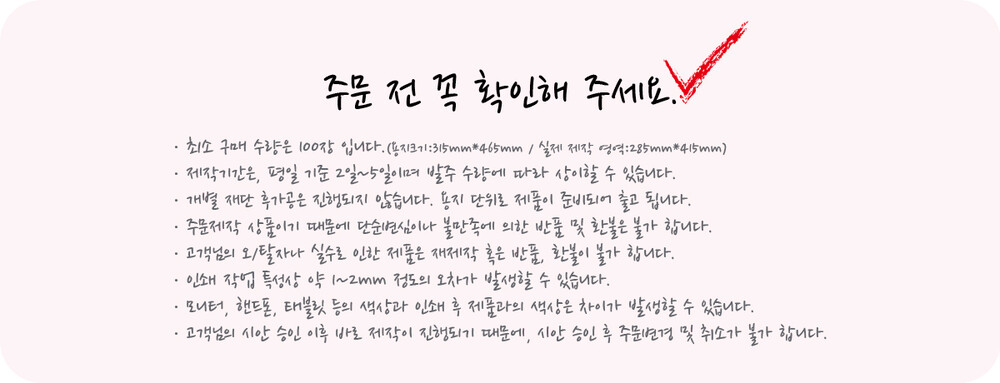 주문 전 꼭 확인해 주세요.
· 최소 구매 수량은 100장 입니다.(용지크기:315mm*465mm / 실제 제작 영역:285mm*415mm)
· 제작기간은, 평일 기준 2일~5일이며 발주 수량에 따라 상이할 수 있습니다.
· 개별 재단 후가공은 진행되지 않습니다. 용지 단위로 제품이 준비되어 출고 됩니다.
· 주문제작 상품이기 때문에 단순변심이나 불만족에 의한 반품 및 환불은 불가 합니다.
· 고객님의 오/탈자나 실수로 인한 제품은 재제작 혹은 반품, 환불이 불가 합니다.
· 인쇄 작업 특성상 약 1~2mm 정도의 오차가 발생할 수 있습니다.
· 모니터, 핸드폰, 태블릿 등의 색상과 인쇄 후 제품과의 색상은 차이가 발생할 수 있습니다.
· 고객님의 시안 승인 이후 바로 제작이 진행되기 때문에, 시안 승인 후 주문변경 및 취소가 불가 합니다.